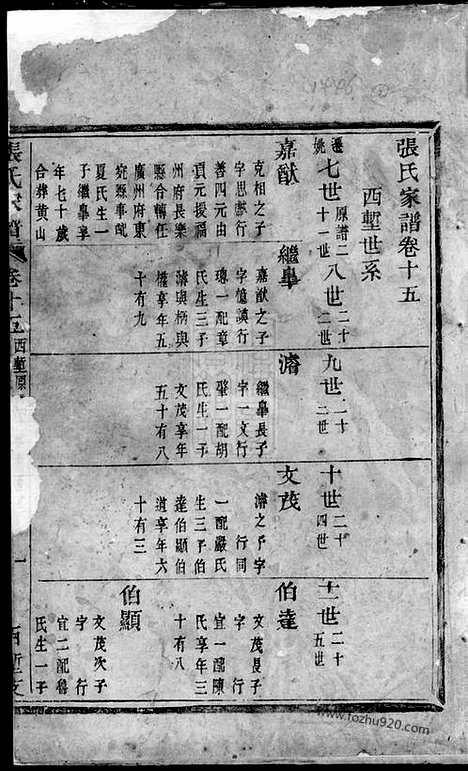 張氏家譜卷十五
西塹世系
遷姚七世原譜二十一世
嘉猷
克相之子
字思猷行
善四元由
貢元授福
州府長樂
縣令轉任
廣州府東
莞縣事配
夏氏生一
子繼皋享
年七十歲
合葬黄山
八世二十二世
繼皋
嘉猷之子
字憶謨行
瓊一配章
氏生三子
濬與柄與
權享年五
十有九
九世二十三世
濬
繼皋長子
字一文行
肇一配胡
氏生一子
文茂享年
五十有八
十世二十四世
文茂
濬之子字
行同
一配嚴氏
生三子伯
達伯顯伯
道享年六
十有三
十一世二十五世
伯達
文茂長子
字 行
宜一配陳
氏享年三
十有八
伯顯
文茂次子
字 行
宜二配魯
氏生一子
張氏家譜 卷十五 西塹原
一
www.fozhu920.com